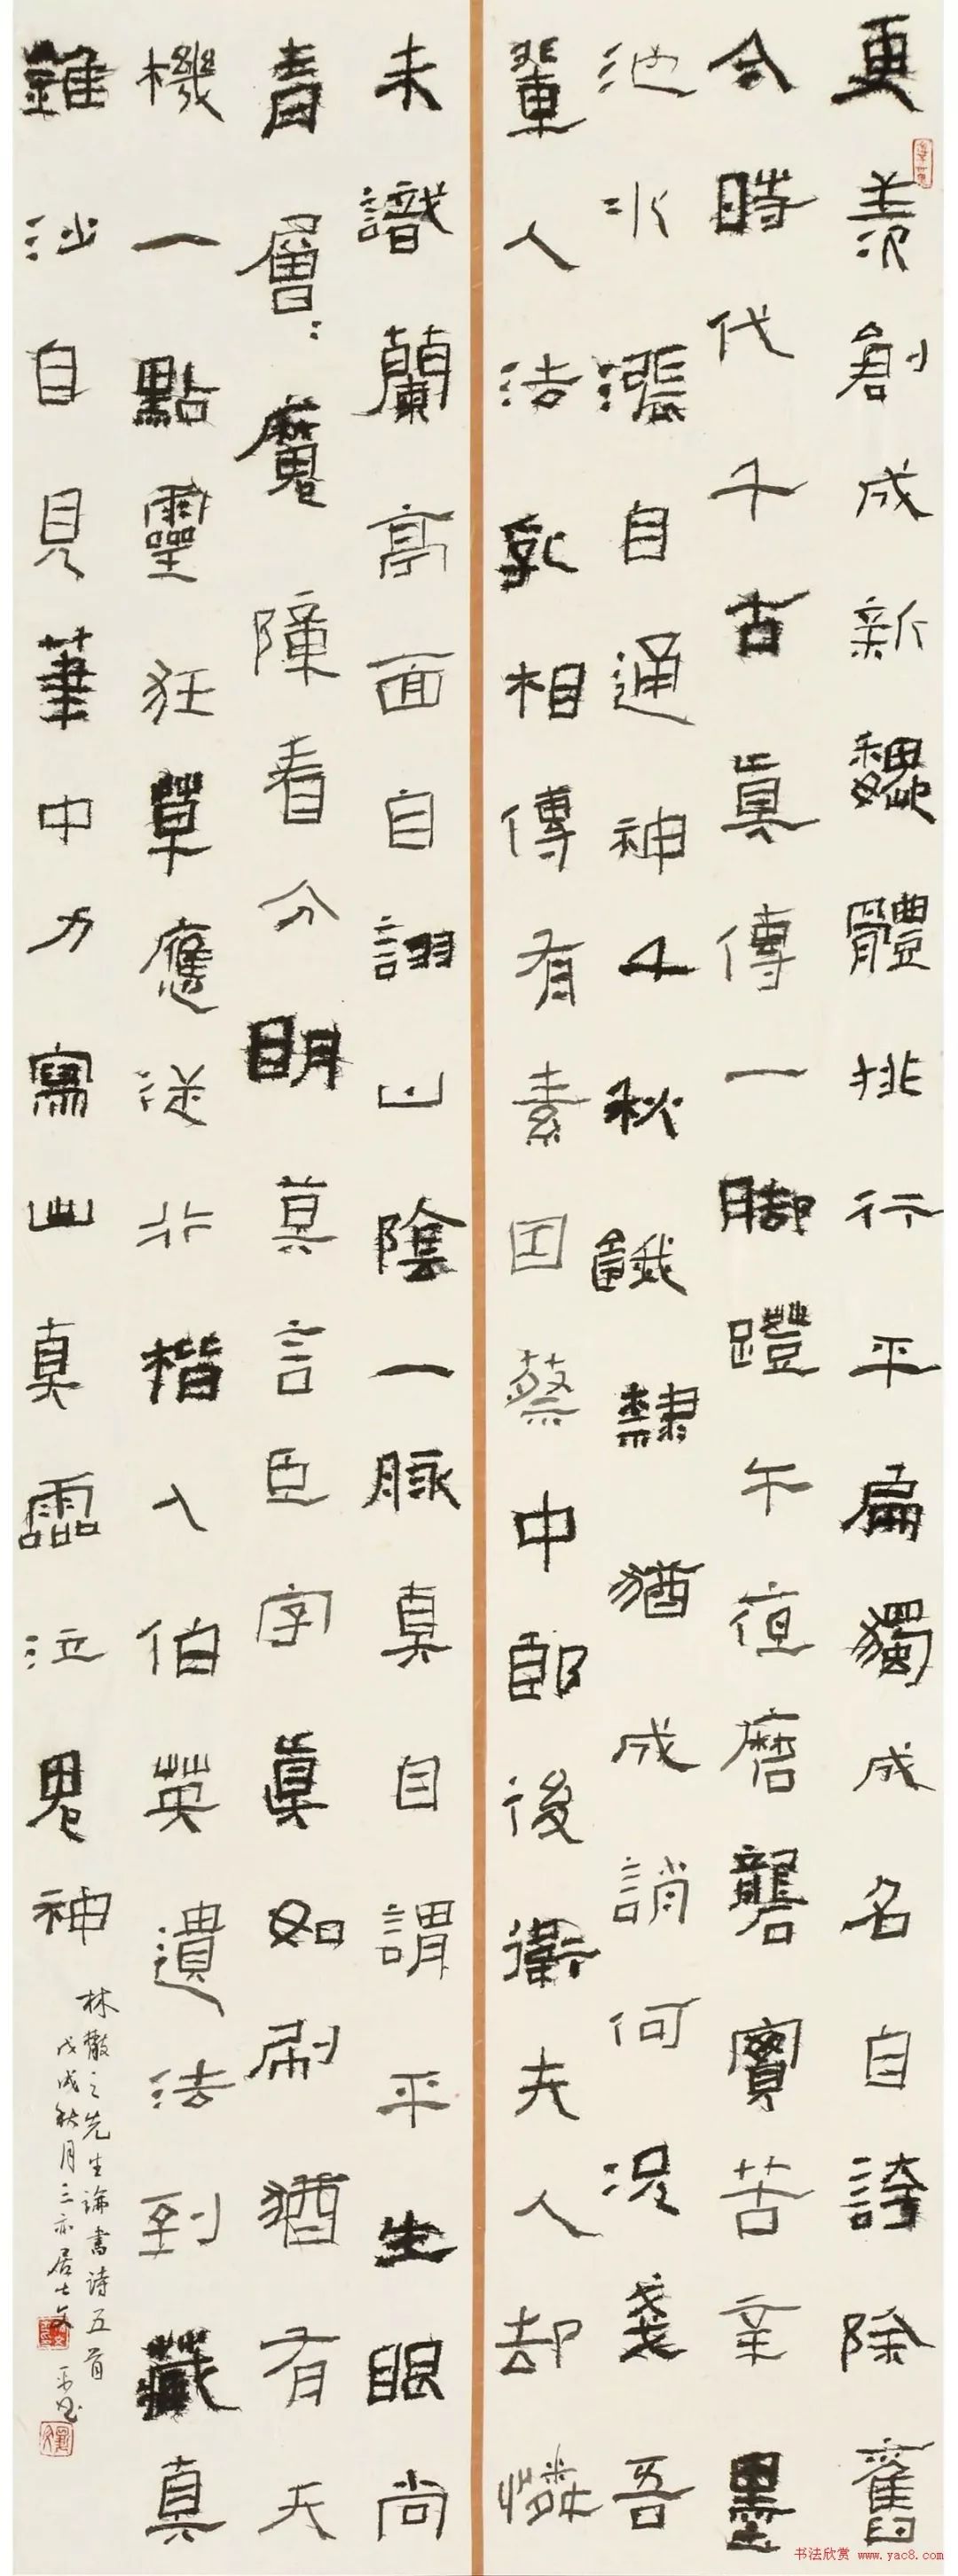 更羨創成新魏體排行平扁獨成名自誇除舊
今時代千古真傳一脚蹬午夜磨礱實苦辛墨
池水漲自通神千秋餓隸猶成誚何況戔戔吾
輩人法乳相傳有素因蔡中郎後衛夫人却憐
未識蘭亭面自詡山陰一脉真自謂平生眼尚
青層:魔障看分明莫言臣字真如刷猶有天
機一點靈狂草應從行楷入伯英遺法到藏真
錐沙自見筆中力寫出真靈泣鬼神
林散之先生論書詩五首
戊戌秋月三亦居士文平書
书法欣赏 www.yac8.com